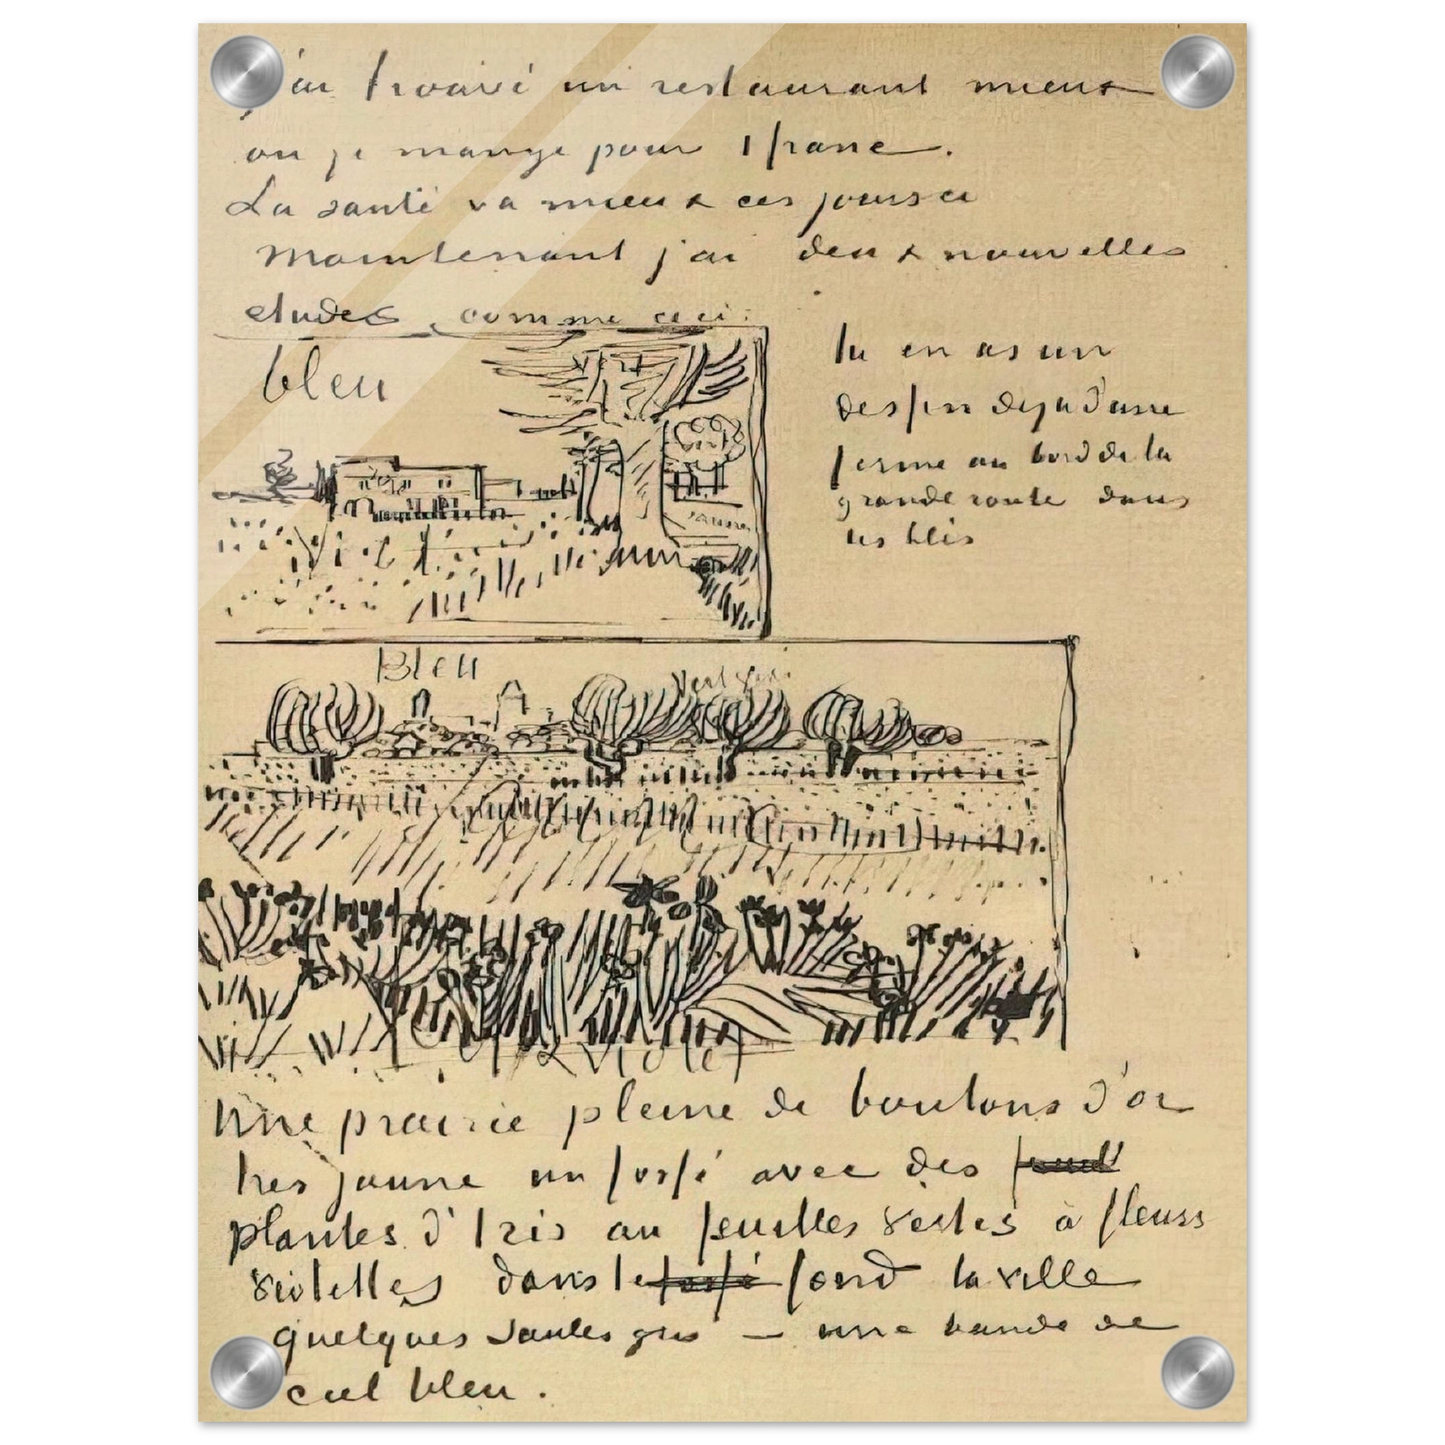 J'ai trouvé un restaurant mieux
ou je mange pour 1 franc.
La santé va mieux ces jours ci
Maintenant j'ai deux nouvelles
etudes comme ceci:
tu en as un
dessin deja d'une
ferme au bord de la
grande route dans
les blés
bleu
vert
jaune
Bleu
Vert gris
Violet
Une prairie pleine de boutons d'or
tres jaune un fossé avec des
plantes d'Iris au feuilles vertes à fleurs
violettes dans le fossé fond la ville
quelques saules gris — une bande de
ciel bleu.